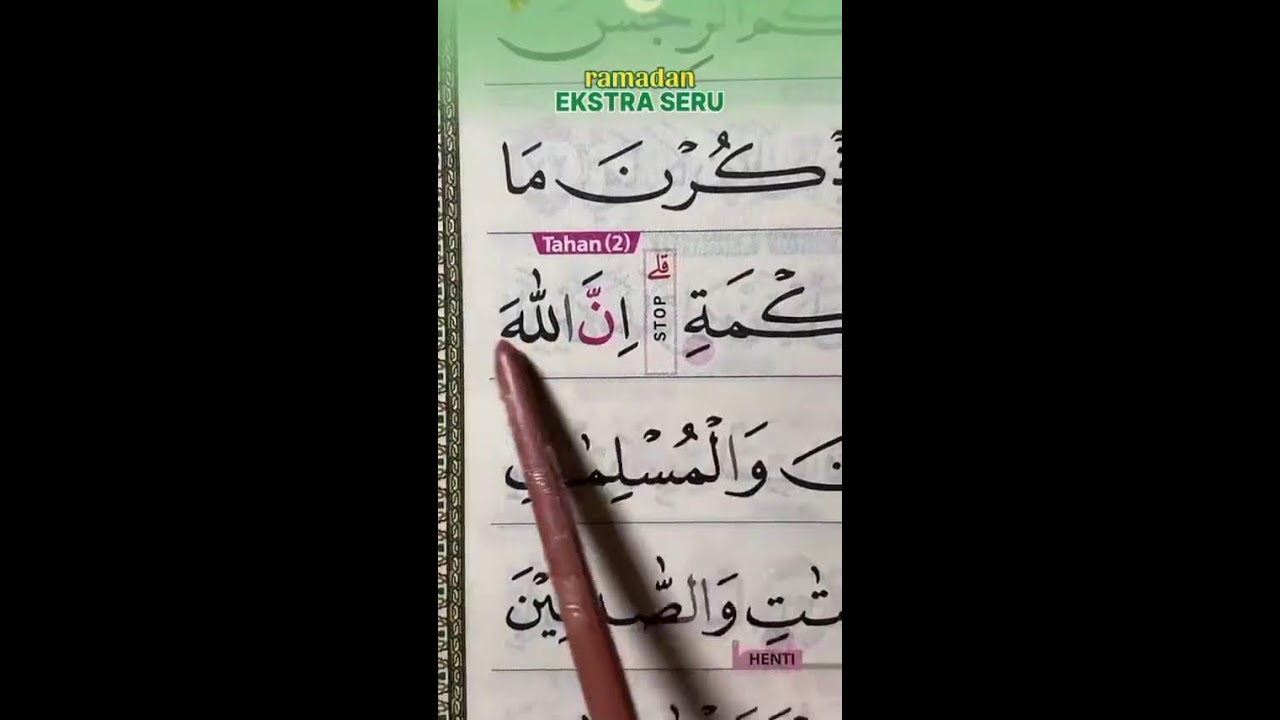 كم الرجس
ramadan
EKSTRA SERU
ذْكُرْنَ مَا
Tahan (2)
كْمَةِ ۗ اِنَّ اللّٰهَ
قلى
STOP
نَ وَالْمُسْلِمٰتِ
تٰتِ وَالصّٰ
HENTI